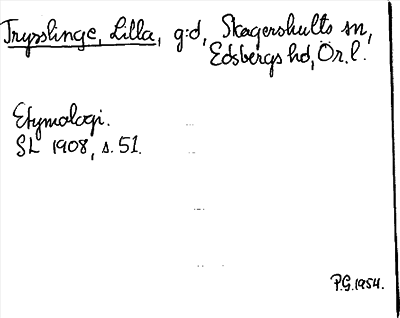 Trysslinge, Lilla, g:d, Skagershults sn,
Edsbergs hd, Ör. l.
Etymologi.
SL 1908, s. 51.
P.G. 1954.